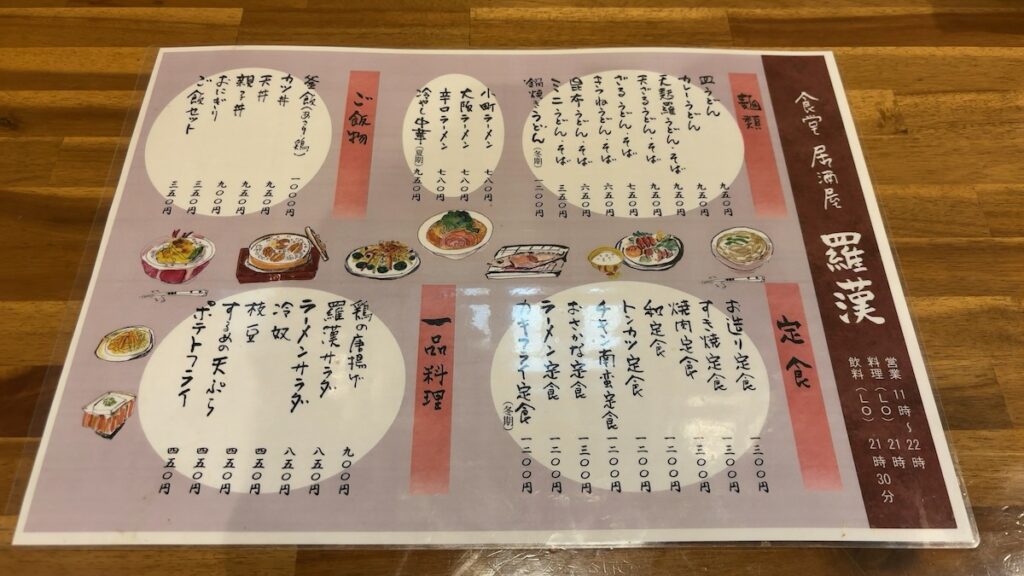 食堂 居酒屋 羅漢
営業 11時〜22時
料理(LO) 21時
飲料(LO) 21時30分
麺類
皿うどん 九五〇円
カレーうどん・そば 九五〇円
天麩羅うどん・そば 九五〇円
天ざるうどん・そば 九五〇円
ざるうどん・そば 七五〇円
きつねうどん・そば 六五〇円
昆布うどん・そば 六五〇円
ミニうどん・そば 三五〇円
鍋焼きうどん(冬期) 一二〇〇円
小町ラーメン 七八〇円
大阪ラーメン 七八〇円
辛口ラーメン 七八〇円
冷やし中華(夏期) 九五〇円
ご飯物
釜飯(あさり・鶏) 一〇〇〇円
カツ丼 九五〇円
天丼 九五〇円
親子丼 九〇〇円
おにぎり 三五〇円
ご飯セット 三五〇円
定食
お造り定食 一三〇〇円
すき焼定食 一三〇〇円
焼肉定食 一三〇〇円
和定食 一二〇〇円
トンカツ定食 一二〇〇円
チキン南蛮定食 一二〇〇円
おさかな定食 一三〇〇円
ラーメン定食 一二〇〇円
カキフライ定食(冬期) 一二〇〇円
一品料理
鶏の唐揚げ 九〇〇円
羅漢サラダ 八五〇円
ラーメンサラダ 八五〇円
冷奴 四五〇円
枝豆 四五〇円
するめの天ぷら 四五〇円
ポテトフライ 四五〇円